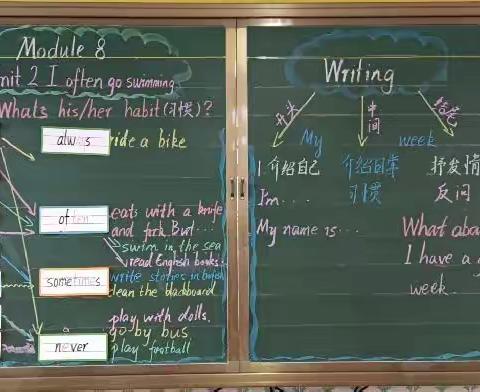 Module 8
nit 2 I often go swimming.
Whats his/her habit (习惯)?
always ride a bike
often eats with a knife
and fork. But...
swim in the sea
read English books.
sometimes write stories in
clean the blackboard
play with dolls.
never go by bus
play football
Writing
开头 中间 结尾
My week
1.介绍自己
I'm...
My name is...
介绍日常
习惯
抒发情
反问
What abo
I have a
week.